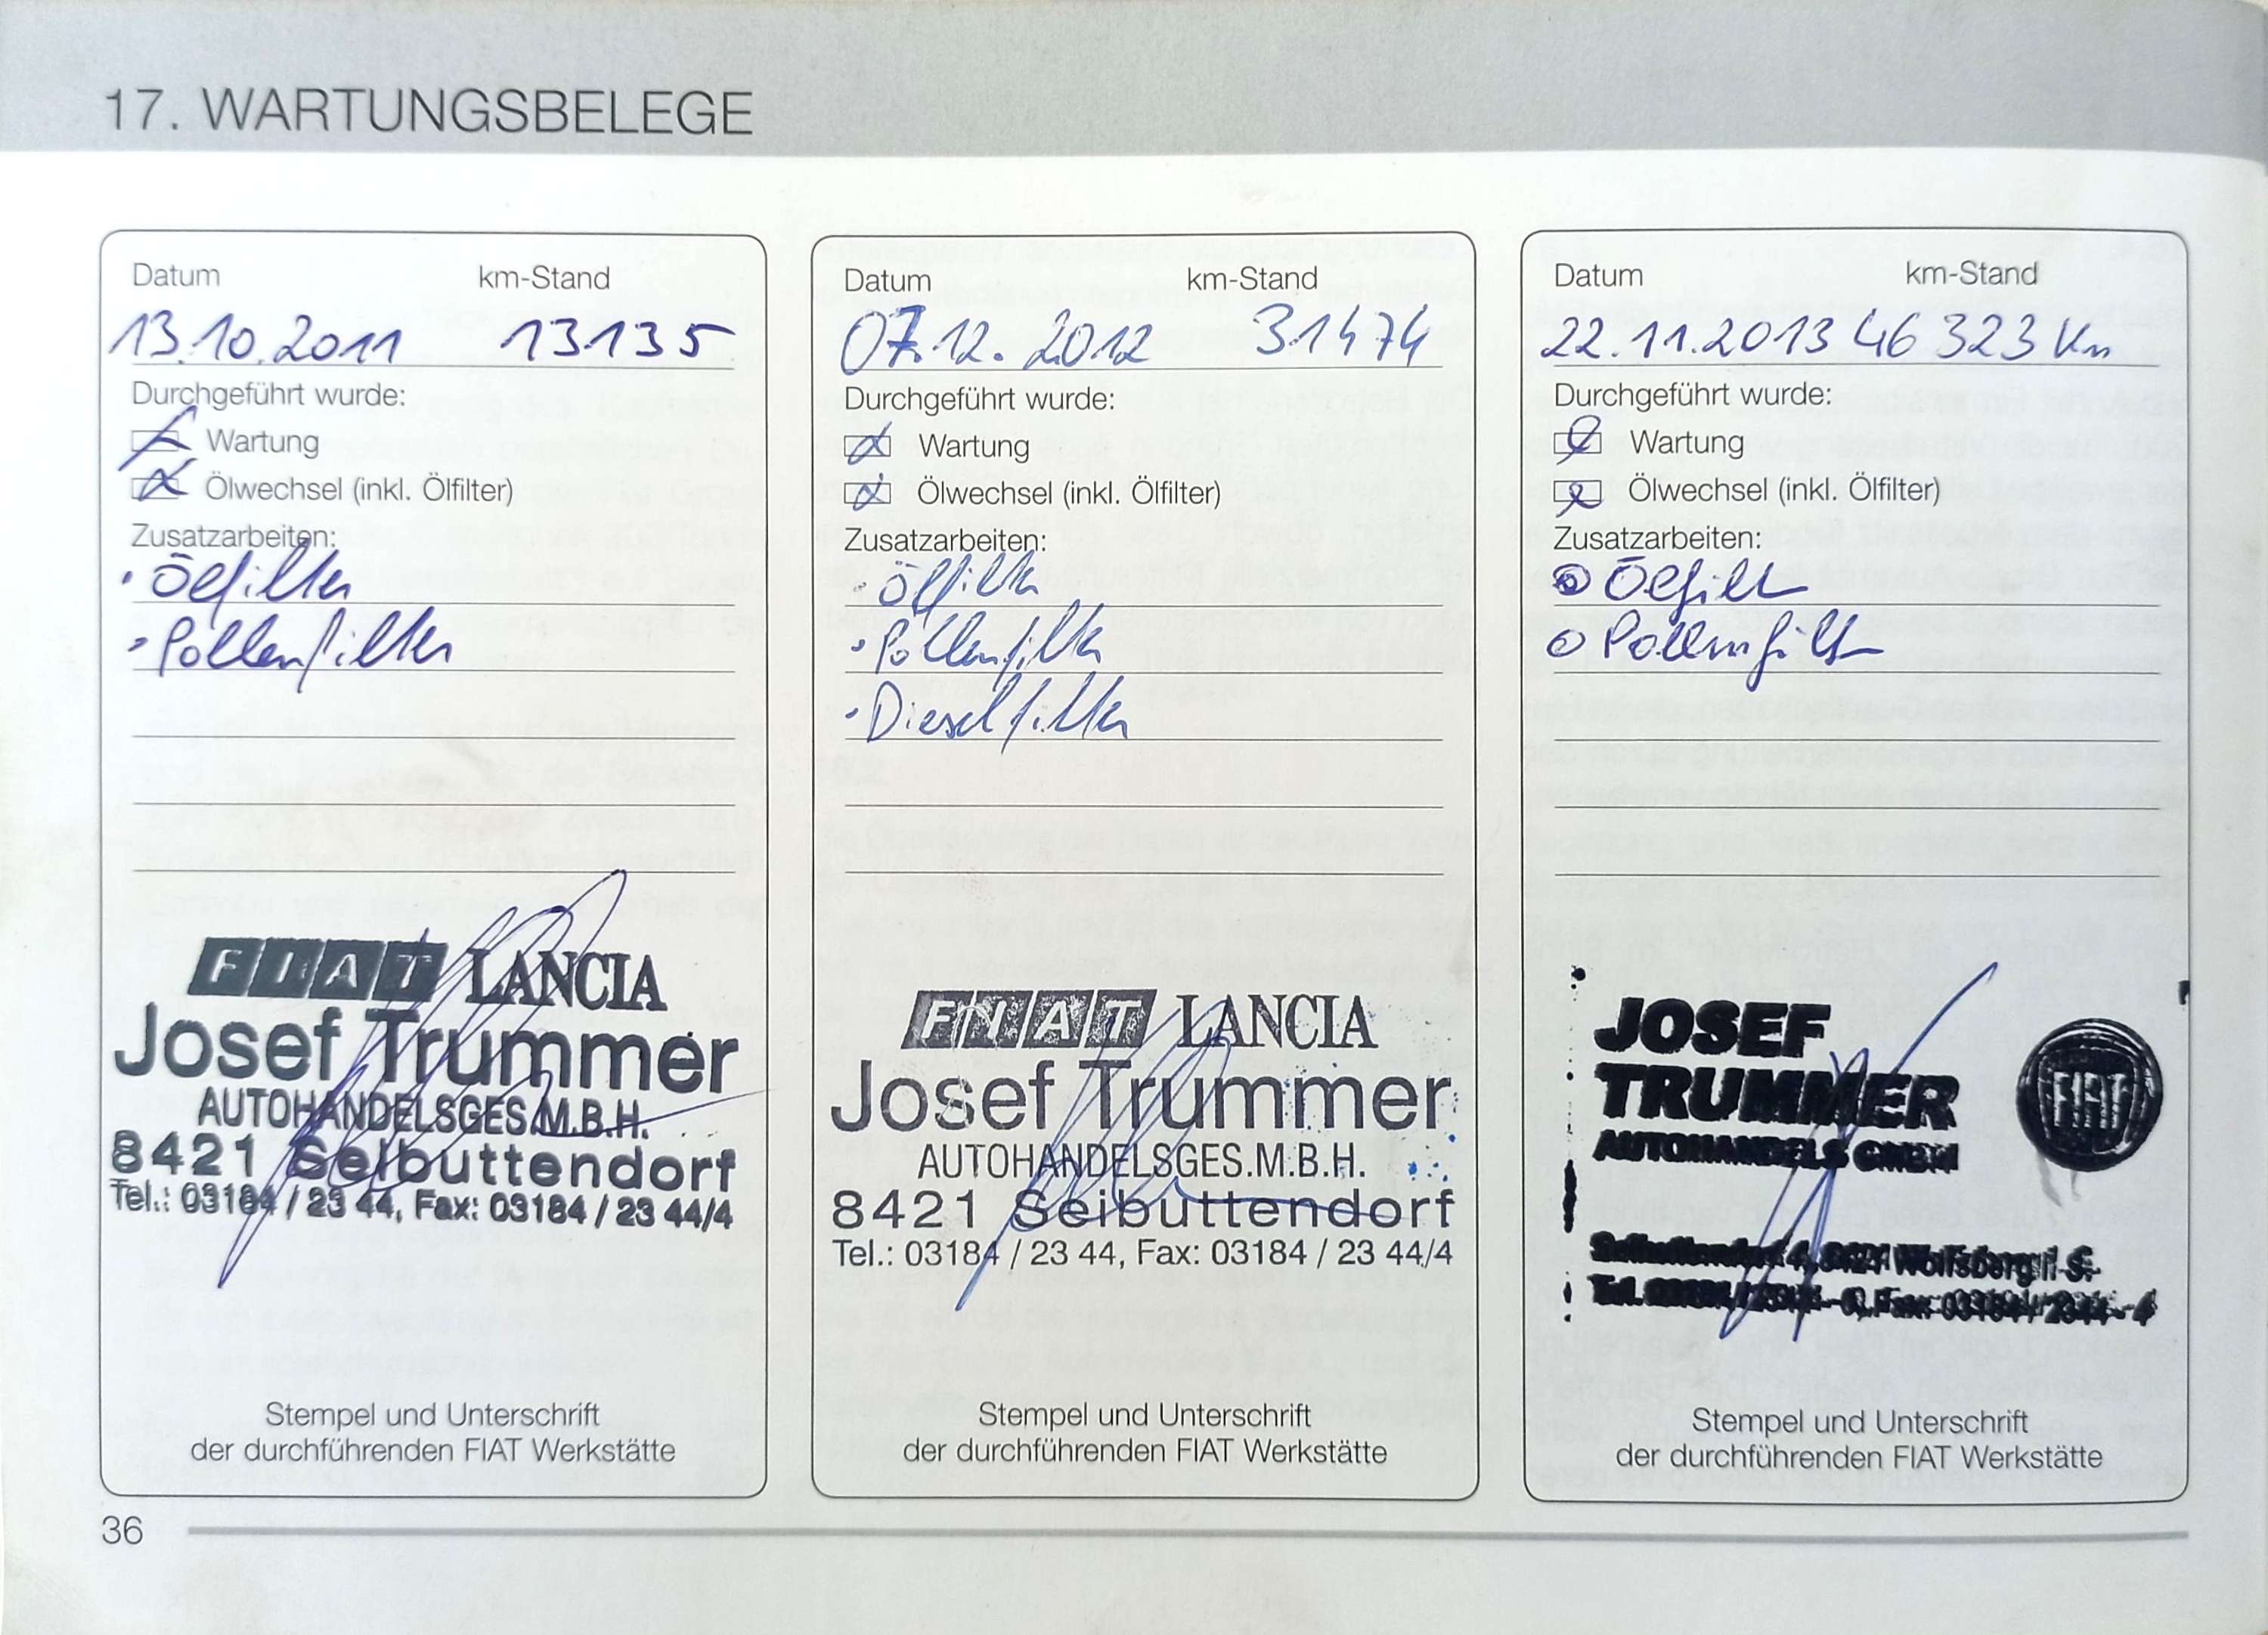 17. WARTUNGSBELEGE
Datum km-Stand
13.10.2011 13135
Durchgeführt wurde:
Wartung
Ölwechsel (inkl. Ölfilter)
Zusatzarbeiten:
· Ölfilter
· Pollenfilter
FIAT LANCIA
Josef Trummer
AUTOHANDELSGES.M.B.H.
8421 Seibuttendorf
Tel.: 03184 / 23 44, Fax: 03184 / 23 44/4
Stempel und Unterschrift
der durchführenden FIAT Werkstätte
Datum km-Stand
07.12.2012 31474
Durchgeführt wurde:
Wartung
Ölwechsel (inkl. Ölfilter)
Zusatzarbeiten:
· Ölfilter
· Pollenfilter
· Dieselfilter
FIAT LANCIA
Josef Trummer
AUTOHANDELSGES.M.B.H.
8421 Seibuttendorf
Tel.: 03184 / 23 44, Fax: 03184 / 23 44/4
Stempel und Unterschrift
der durchführenden FIAT Werkstätte
Datum km-Stand
22.11.2013 46 323 Km
Durchgeführt wurde:
Wartung
Ölwechsel (inkl. Ölfilter)
Zusatzarbeiten:
Ölfilt
Pollenfilt
JOSEF
TRUMMER
FIAT
AUTOHANDELS GMBH
Wolfsberg i. S.
Fax: 03184 / 2344 - 4
Stempel und Unterschrift
der durchführenden FIAT Werkstätte
36